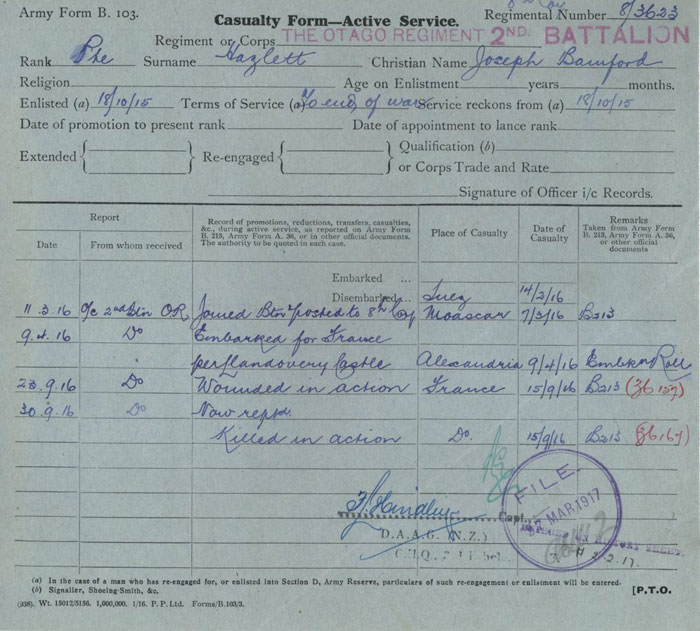 Army Form B. 103.
Casualty Form—Active Service.
Regimental Number 8/3623
Regiment or Corps THE OTAGO REGIMENT 2ND. BATTALION
Rank Pte Surname Hazlett Christian Name Joseph Bamford
Religion Age on Enlistment years months.
Enlisted (a) 18/10/15 Terms of Service (a) To end of war Service reckons from (a) 18/10/15
Date of promotion to present rank Date of appointment to lance rank
Extended Re-engaged Qualification (b)
or Corps Trade and Rate
Signature of Officer i/c Records.
Report
Date From whom received
Record of promotions, reductions, transfers, casualties, &c., during active service, as reported on Army Form B. 213, Army Form A. 36, or in other official documents. The authority to be quoted in each case.
Place of Casualty
Date of Casualty
Remarks
Taken from Army Form B. 213, Army Form A. 36, or other official documents
Embarked ... 
Disembarked... Suez 14/2/16
11.3.16 O/c 2nd Btn OR Joined Btn & posted to 8th Coy Moascar 7/3/16 B213
9.4.16 Do Embarked for France
per Llandovery Castle Alexandria 9/4/16 Embkn Roll
23.9.16 Do Wounded in action France 15/9/16 B213
30.9.16 Do Now reptd.
Killed in action Do. 15/9/16 B213
Capt.
D.A.A.G. (N.Z.)
FILE.
MAR. 1917
(a) In the case of a man who has re-engaged for, or enlisted into Section D, Army Reserve, particulars of such re-engagement or enlistment will be entered.
(b) Signaller, Shoeing-Smith, &c.
[P.T.O.
(938). Wt. 15012/3156. 1,000,000. 1/16. P.P. Ltd. Forms/B.103/3.